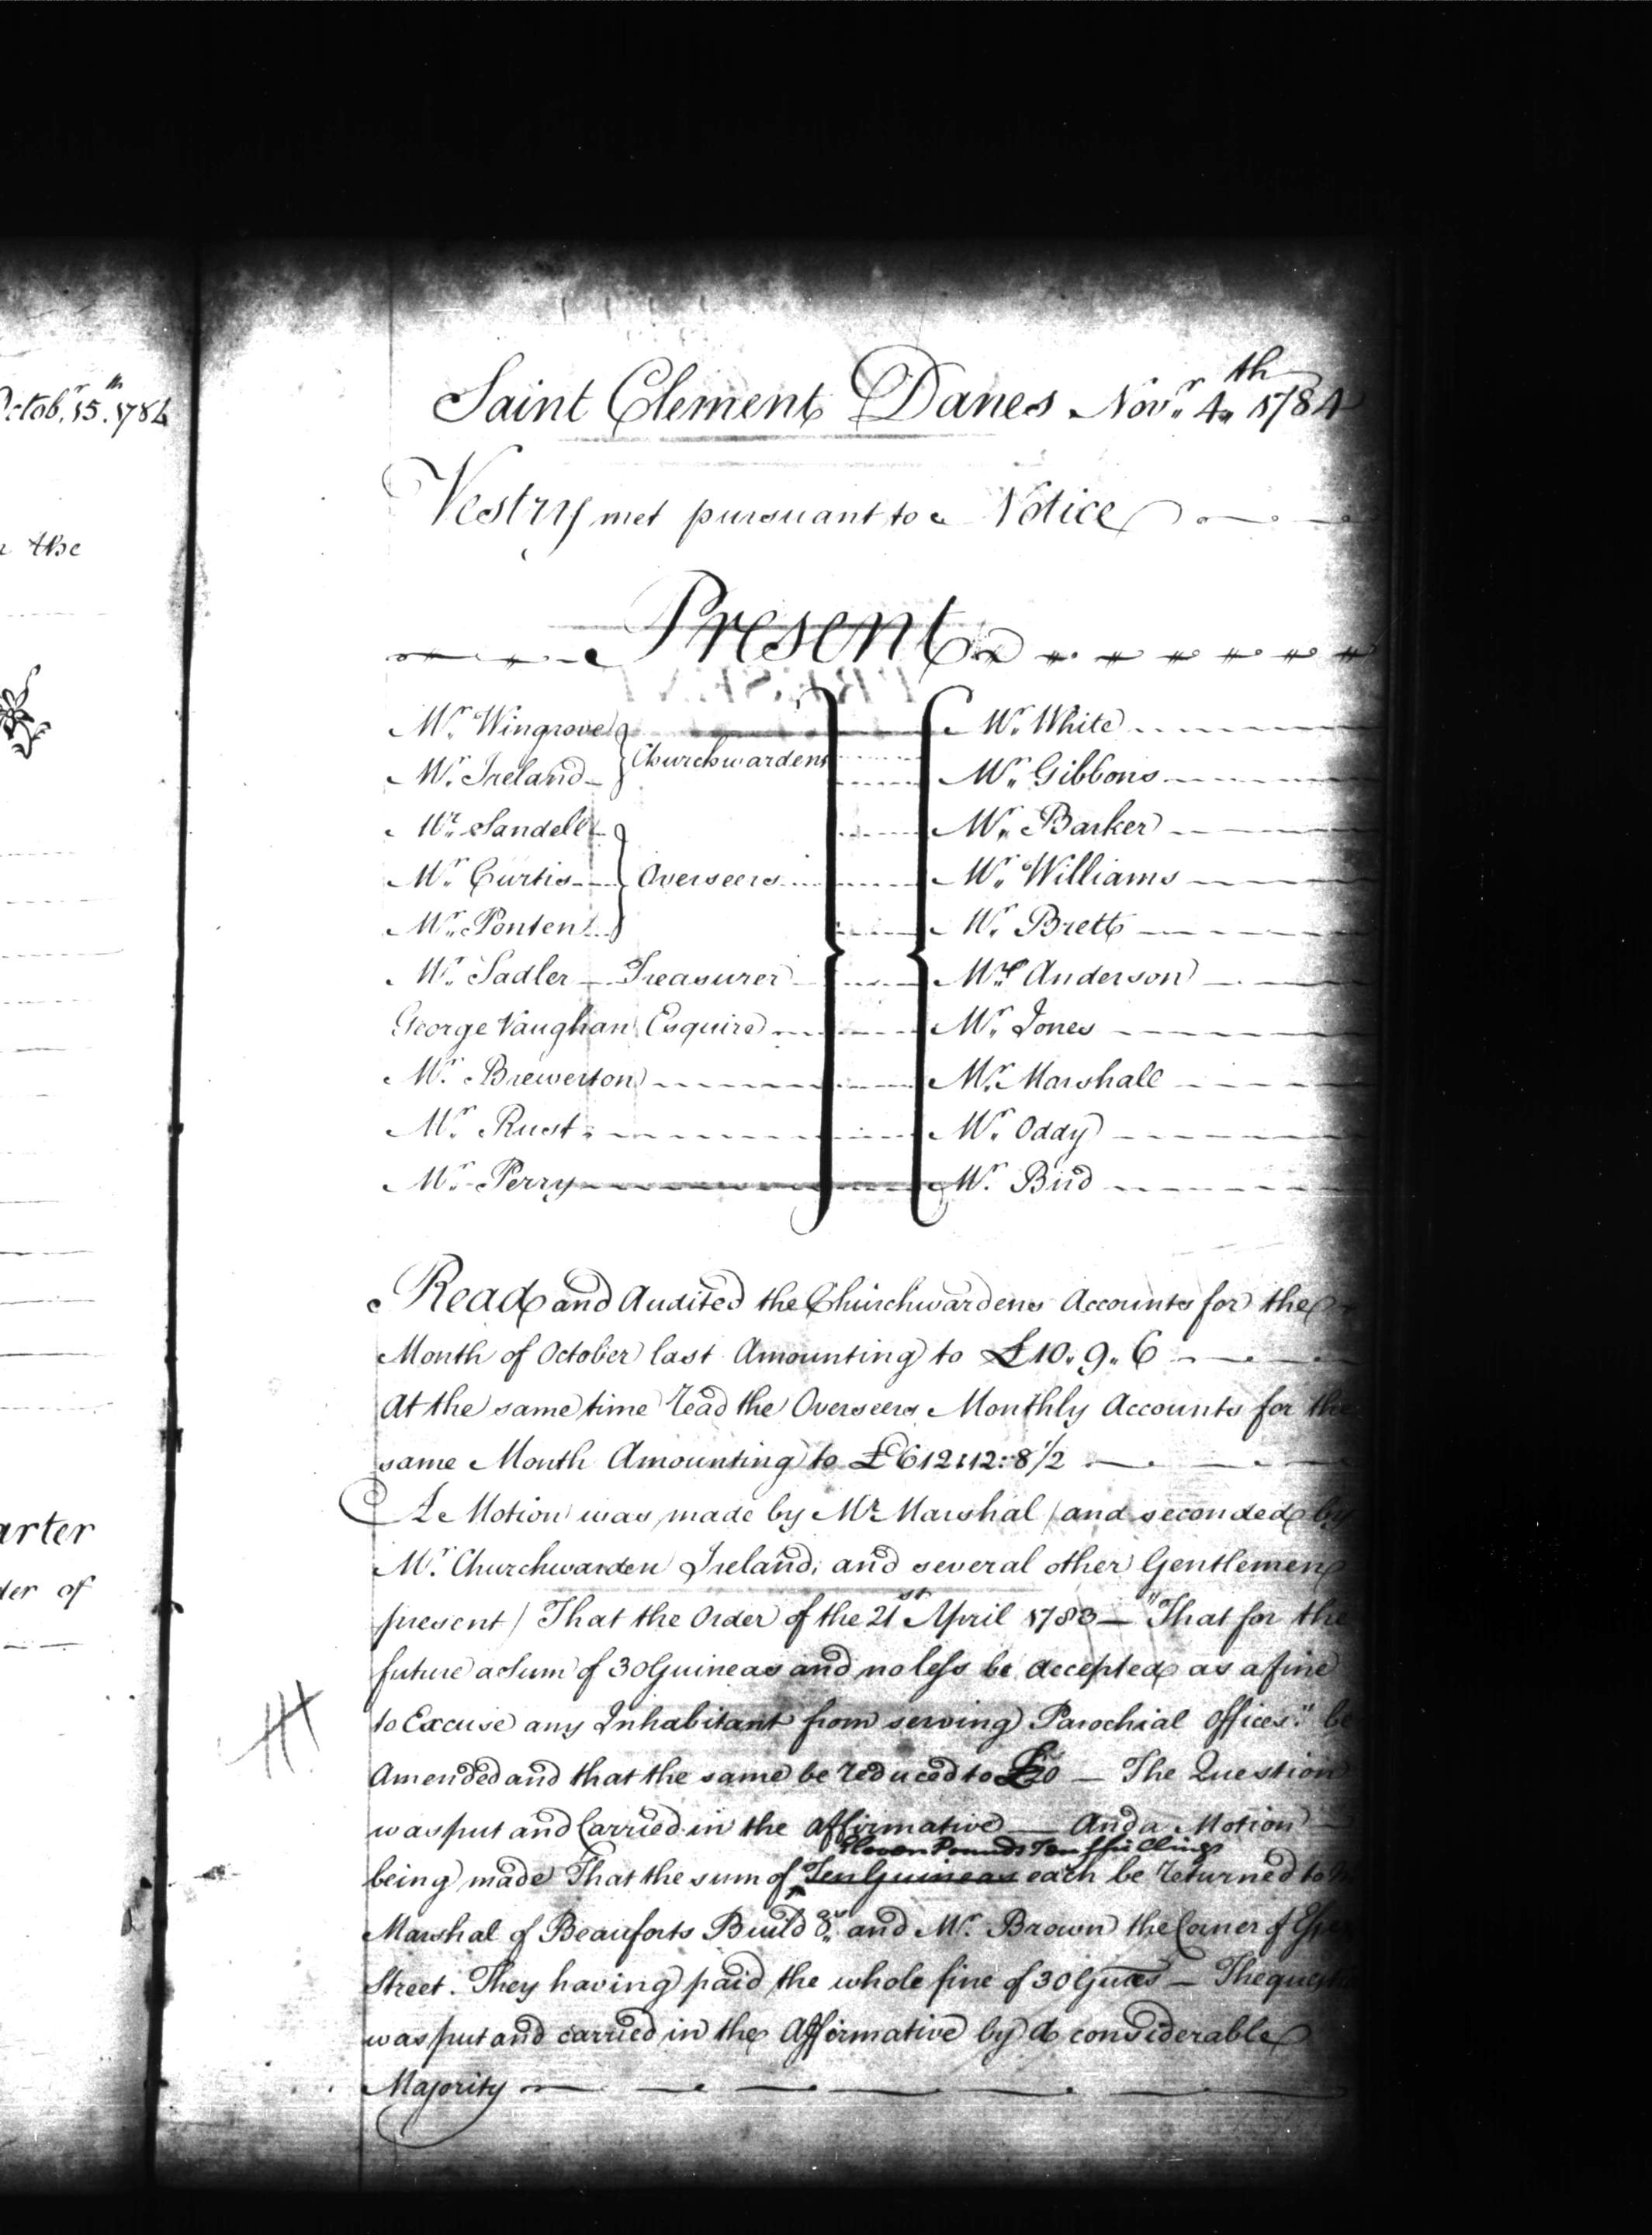 Octob.r 15.th 1784
the
arter
der of
Saint Clement Danes Nov.r 4.th 1784
Vestry met pursuant to Notice
Present
Mr. Wingrove
Mr. Ireland
Churchwardens
Mr. Sandell
Mr. Curtis
Mr. Ponten
Overseers
Mr. Sadler Treasurer
George Vaughan Esquire
Mr. Brewerton
Mr. Rust
Mr. Perry
Mr. White
Mr. Gibbons
Mr. Barker
Mr. Williams
Mr. Brett
Mr. Anderson
Mr. Jones
Mr. Marshall
Mr. Oddy
Mr. Bird
Read and Audited the Churchwardens Accounts for the
Month of October last Amounting to £10. 9. 6
At the same time read the Overseers Monthly Accounts for the
same Month Amounting to £612:12:8 1/2
A Motion was made by Mr. Marshal (and seconded by
Mr. Churchwarden Ireland, and several other Gentlemen
present) That the Order of the 21st April 1783 — "That for the
future a Sum of 30 Guineas and no less be accepted as a fine
to Excuse any Inhabitant from serving Parochial Offices." be
Amended and that the same be reduced to £20 — The Question
was put and Carried in the Affirmative — And a Motion
Eleven Pounds Ten Shillings
being made That the sum of Ten Guineas each be returned to
Marshal of Beauforts Build.gs and Mr. Brown the Corner of
Street. They having paid the whole fine of 30 Guas — The
was put and carried in the Affirmative by a considerable
Majority